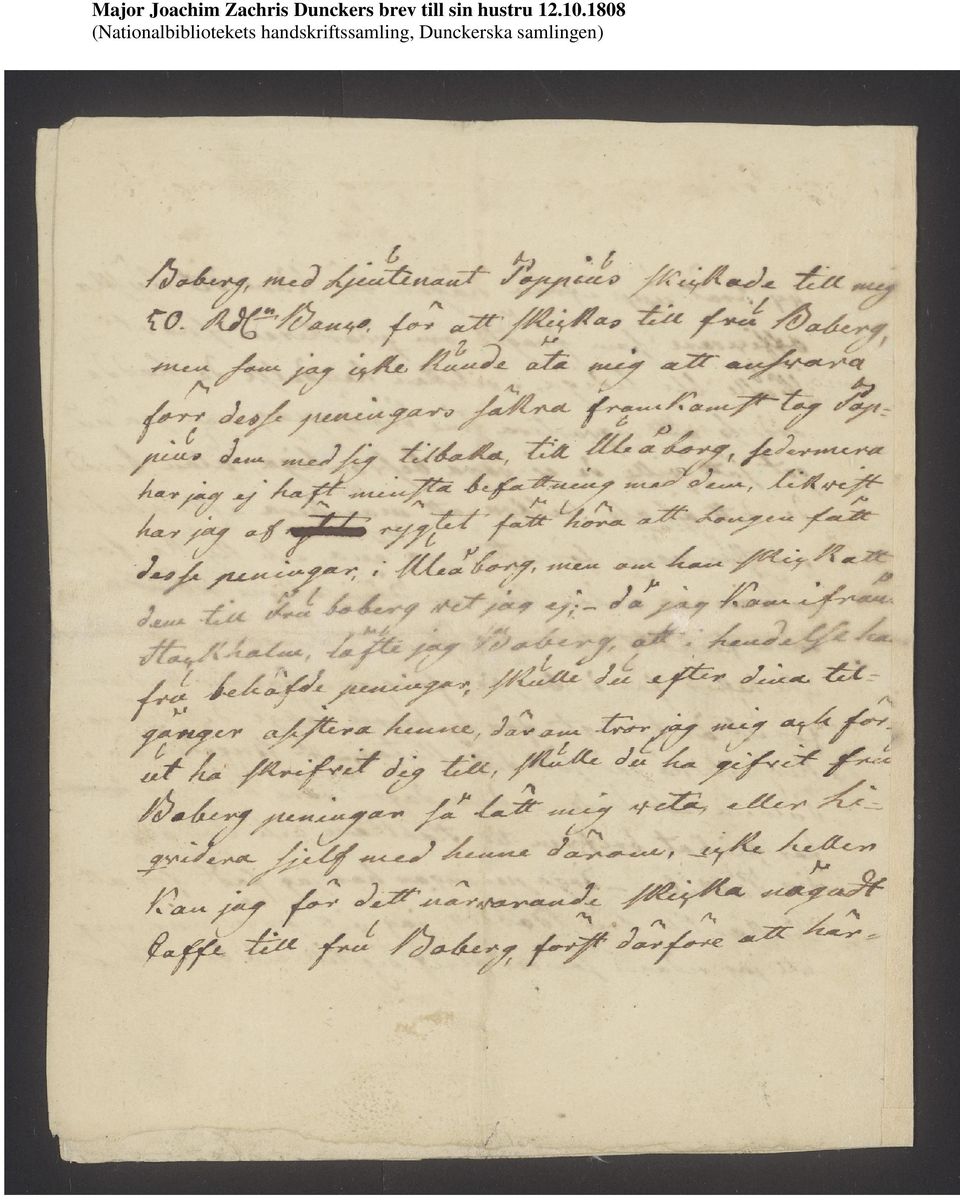 Major Joachim Zachris Dunckers brev till sin hustru 12.10.1808
(Nationalbibliotekets handskriftssamling, Dunckerska samlingen)
Boberg, med Ljeutenant Toppius skickade till mig
50. Rd Banco, för att skickas till fru Boberg,
men som jag icke kunde åta mig att answara
förr desse peningars säkra framkomst tog Top=
pius dem med sig tilbaka, till Uleåborg, sedermera
har jag ej haft minsta befattning med dem, likwist
har jag af rygtet fått höra att Longen fått
desse peningar, i Uleåborg, men om han skickatt
dem till Fru boberg wet jag ej; – då jag kom ifrån
Stockholm, lofte jag Boberg, att i hendelse ha
fru behöfde peningar, skulle du efter dina til=
gånger assistera henne, därom tror jag mig ock för=
ut ha skrifwit dig till, skulle du ha gifwit fru
Boberg peningar så lått mig weta, eller li=
qwidera sjelf med henne därom, icke heller
kan jag för dett närwarande skicka någodt
Caffe till fru Boberg, först därföre att här=